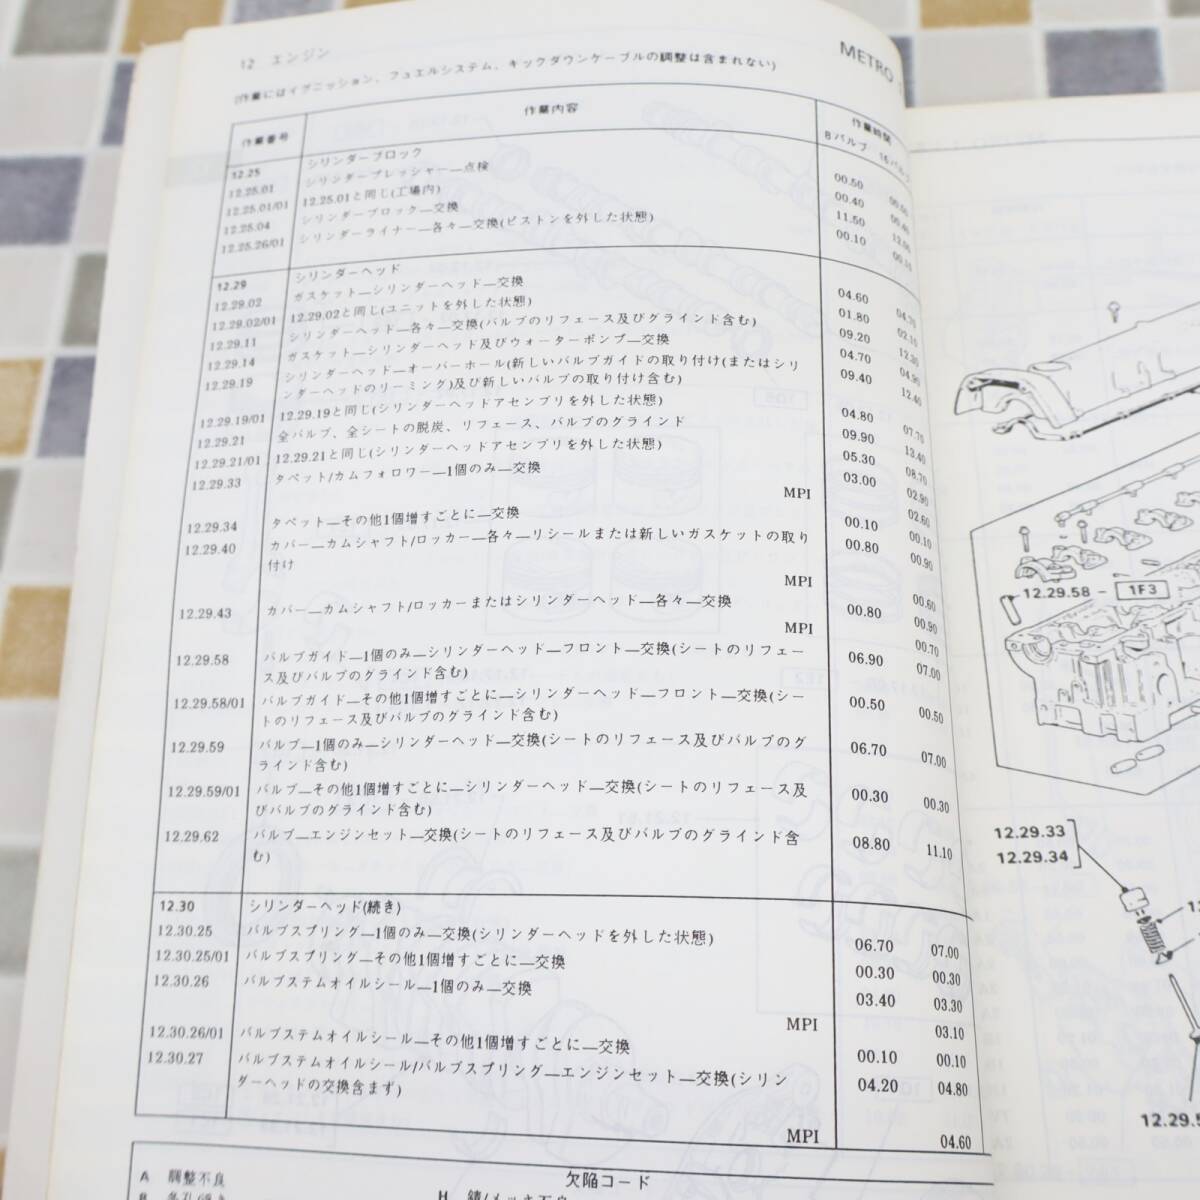 12 エンジン
METRO
(作業にはイグニッション、フュエルシステム、キックダウンケーブルの調整は含まれない)
作業番号 作業内容 作業時間
8バルブ 16バルブ
12.25 シリンダーブロック
12.25.01 シリンダープレッシャー—点検 00.50
12.25.01/01 12.25.01と同じ(工場内) 00.40
12.25.04 シリンダーブロック—交換 11.50 12.00
12.25.26/01 シリンダーライナー—各々—交換(ピストンを外した状態) 00.10 00.10
12.29 シリンダーヘッド
12.29.02 ガスケット—シリンダーヘッド—交換 04.60 04.70
12.29.02/01 12.29.02と同じ(ユニットを外した状態) 01.80 02.10
12.29.11 シリンダーヘッド—各々—交換(バルブのリフェース及びグラインド含む) 09.20 12.30
12.29.14 ガスケット—シリンダーヘッド及びウォーターポンプ—交換 04.70 04.90
12.29.19 シリンダーヘッド—オーバーホール(新しいバルブガイドの取り付け(またはシリ 09.40 12.40
ンダーヘッドのリーミング)及び新しいバルブの取り付け含む)
12.29.19/01 12.29.19と同じ(シリンダーヘッドアセンブリを外した状態) 04.80 07.70
12.29.21 全バルブ、全シートの脱炭、リフェース、バルブのグラインド 09.90 13.40
12.29.21/01 12.29.21と同じ(シリンダーヘッドアセンブリを外した状態) 05.30 08.70
12.29.33 タペット/カムフォロワー—1個のみ—交換 03.00 02.90
MPI 02.60
12.29.34 タペット—その他1個増すごとに—交換 00.10 00.10
12.29.40 カバー—カムシャフト/ロッカー—各々—リシールまたは新しいガスケットの取り 00.80 00.90
付け
MPI 00.60
12.29.43 カバー—カムシャフト/ロッカーまたはシリンダーヘッド—各々—交換 00.80 00.90
MPI 00.70
12.29.58 バルブガイド—1個のみ—シリンダーヘッド—フロント—交換(シートのリフェー 06.90 07.00
ス及びバルブのグラインド含む)
12.29.58/01 バルブガイド—その他1個増すごとに—シリンダーヘッド—フロント—交換(シー 00.50 00.50
トのリフェース及びバルブのグラインド含む)
12.29.59 バルブ—1個のみ—シリンダーヘッド—交換(シートのリフェース及びバルブのグ 06.70 07.00
ラインド含む)
12.29.59/01 バルブ—その他1個増すごとに—シリンダーヘッド—交換(シートのリフェース及 00.30 00.30
びバルブのグラインド含む)
12.29.62 バルブ—エンジンセット—交換(シートのリフェース及びバルブのグラインド含 08.80 11.10
む)
12.30 シリンダーヘッド(続き)
12.30.25 バルブスプリング—1個のみ—交換(シリンダーヘッドを外した状態) 06.70 07.00
12.30.25/01 バルブスプリング—その他1個増すごとに—交換 00.30 00.30
12.30.26 バルブステムオイルシール—1個のみ—交換 03.40 03.30
MPI 03.10
12.30.26/01 バルブステムオイルシール—その他1個増すごとに—交換 00.10 00.10
12.30.27 バルブステムオイルシール/バルブスプリング—エンジンセット—交換(シリン 04.20 04.80
ダーヘッドの交換含まず)
MPI 04.60
欠陥コード
A 調整不良
12.29.58 - 1F3
12.29.33
12.29.34